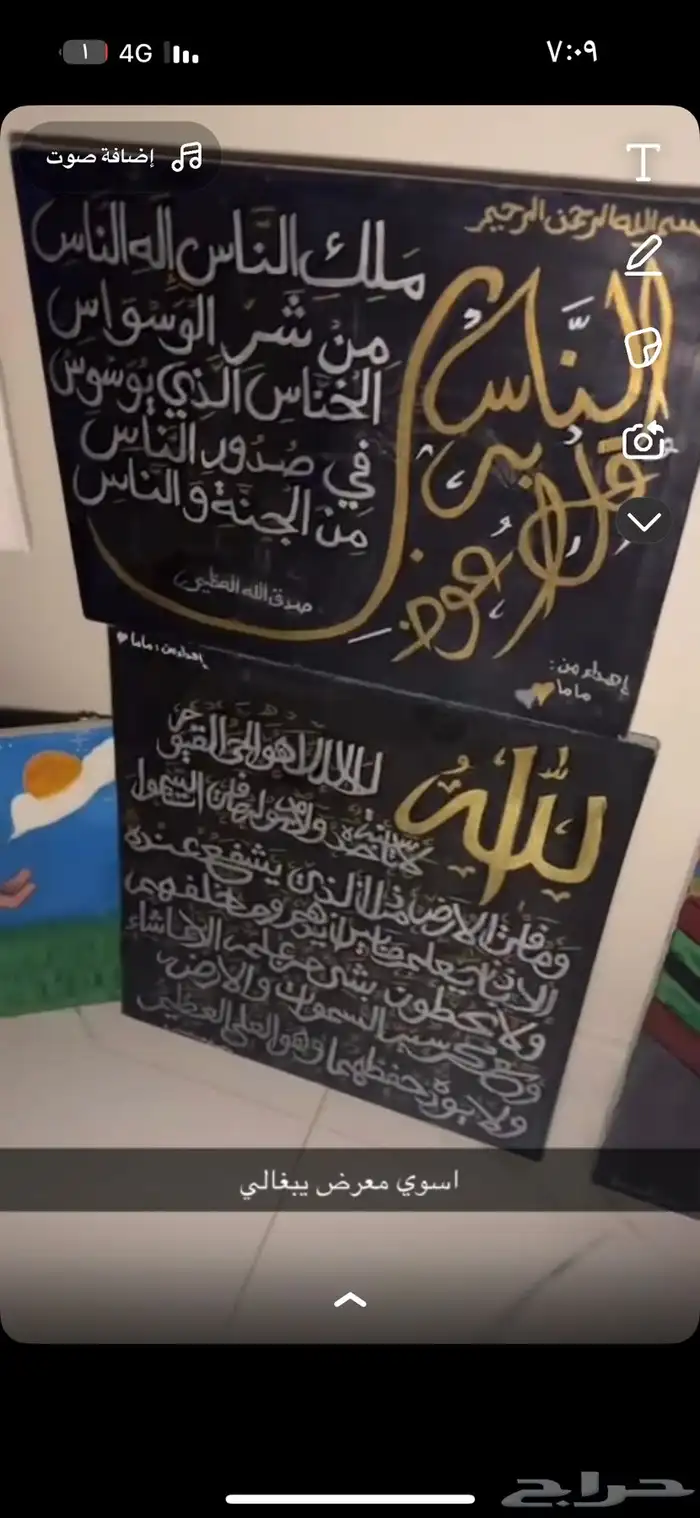 ٧:٠٩
4G
١
إضافة صوت
بسم الله الرحمن الرحيم
قل أعوذ برب الناس
مَلِكِ النَّاس إلَهِ النَّاسِ
مِنْ شَرِّ الوَسْوَاسِ
الخَنَّاسِ الَّذِي يُوَسْوِسُ
فِي صُدُورِ النَّاسِ
مِنَ الجِنَّةِ وَالنَّاسِ
صدق الله العظيم
إهداء من:
ماما
إهداء من: ماما
الله
لا إله إلا هو الحي القيوم
لا تأخذه سنة ولا نوم له ما في السموات
وما في الأرض من ذا الذي يشفع عنده
إلا بإذنه يعلم ما بين أيديهم وما خلفهم
ولا يحيطون بشيء من علمه إلا بما شاء
وسع كرسيه السموات والأرض
ولا يؤده حفظهما وهو العلي العظيم
اسوي معرض يبغالي
حراج